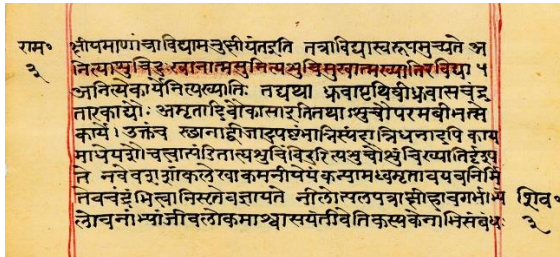 राम॰ क्षीयमाणांचाविद्यामनुक्षीयंतइति तत्राविद्यास्वरूपमुच्यते अ
३ नित्याशुचिदुःखानात्मसुनित्यशुचिसुखात्मख्यातिरविद्या ५
अनित्यकार्येनित्यख्यातिः तद्यथा ध्रुवापृथिवीध्रुवासचंद्र
तारकाद्यौः अमृतादिवौकसइतितथाशुचौपरमबीभत्से
काये उक्तंच स्थानाद्बीजादुपष्टंभान्निस्यंदान्निधनादपि काय
माधेयशौचत्वात्पंडिताह्यशुचिंविदुरित्यशुचौशुचिख्यातिर्दृश्य
ते नवेवशशांकलेखाकमनीयेयंकन्यामध्वमृतावयवनिर्मि
तेवचंद्रंभित्वानिःसृतेवज्ञायते नीलोत्पलपत्राक्षीहावगर्भाभ्यां शिव॰
लोचनाभ्यांजीवलोकमाश्वासयंतीवेतिकस्यकेनाभिसंबंधः ३